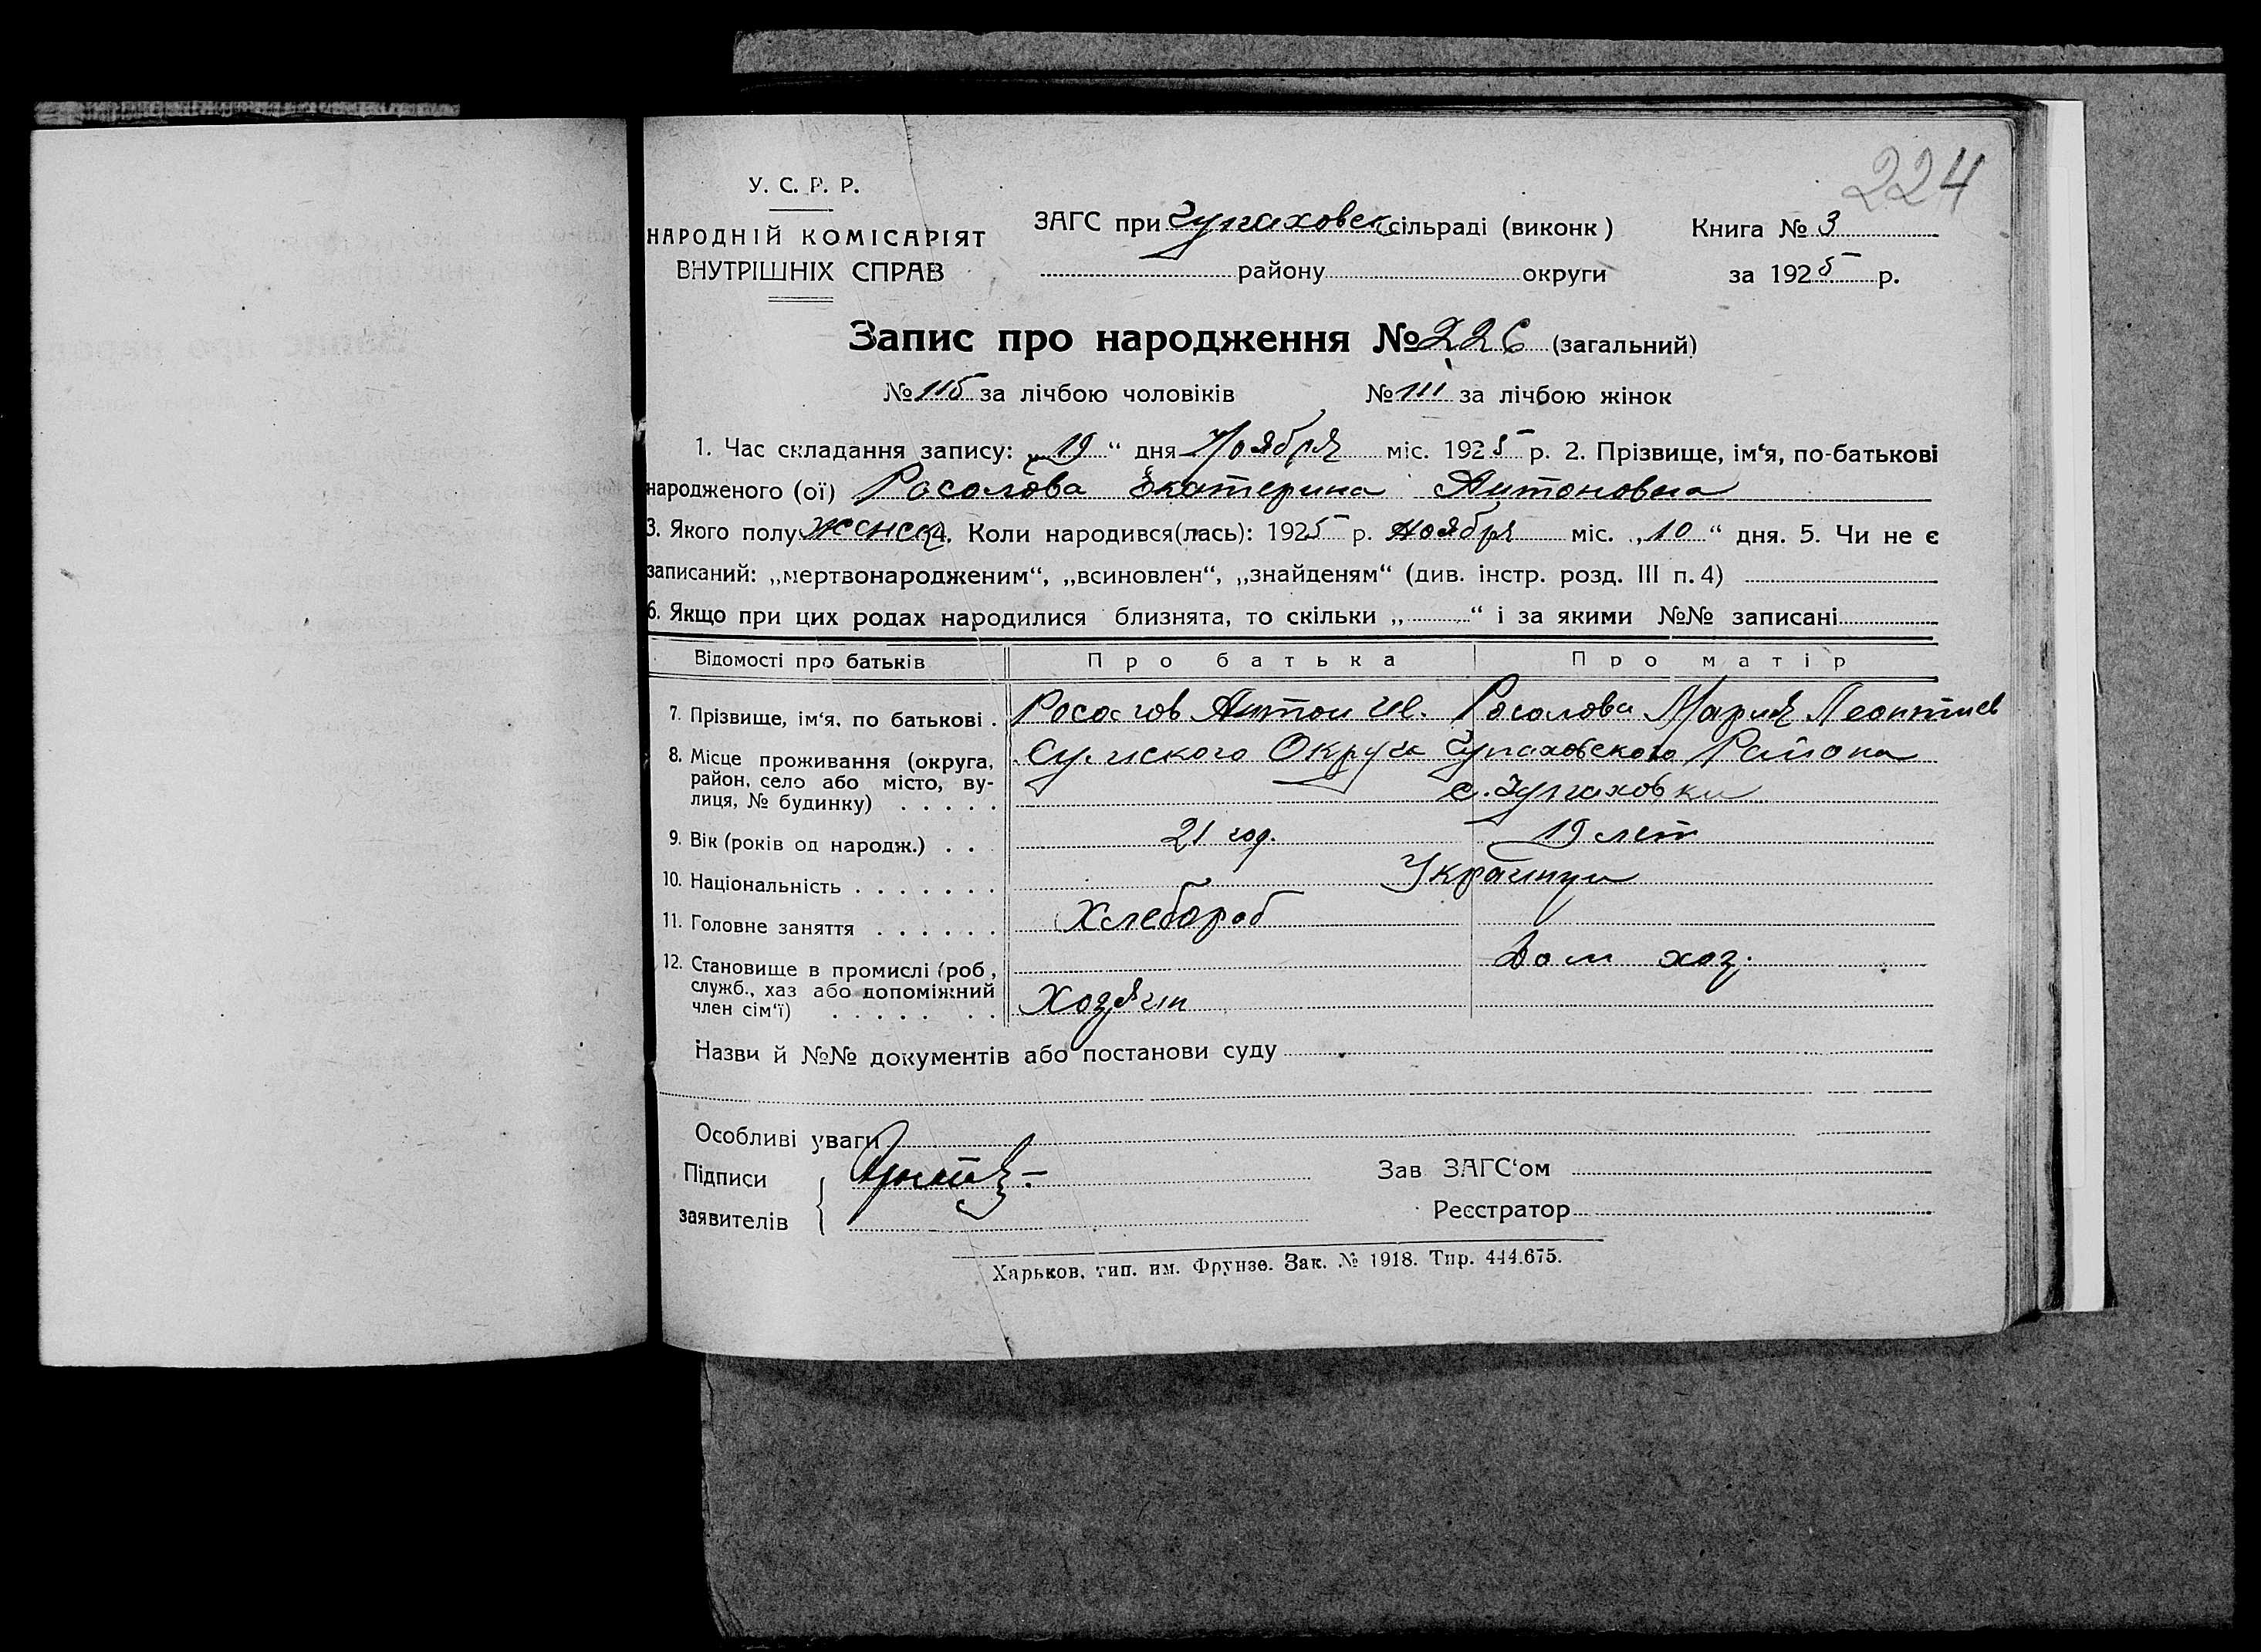 224
У. С. Р. Р.
НАРОДНІЙ КОМІСАРІЯТ
ВНУТРІШНІХ СПРАВ
ЗАГС при Чупаховск сільраді (виконк)
району округи
Книга № 3
за 1925 р.
Запис про народження № 226 (загальний)
№ 115 за лічбою чоловіків № 111 за лічбою жінок
1. Час складання запису: „19“ дня Ноября міс. 1925 р. 2. Прізвище, ім‘я, по-батькові
народженого (ої) Росолова Екатерина Антоновна
3. Якого полу женск 4. Коли народився(лась): 1925 р. Ноября міс. „10“ дня. 5. Чи не є
записаний: „мертвонародженим“, „всиновлен“, „знайденям“ (див. інстр. розд. III п. 4)
6. Якщо при цих родах народилися близнята, то скільки „ “ і за якими №№ записані
Відомості про батьків Про батька Про матір
7. Прізвище, ім‘я, по батькові . Росолов Антон Росолова Мария Леонтиев
8. Місце проживання (округа, Сумского Округа Чупаховского Района
район, село або місто, ву-
лиця, № будинку) . . . . . с. Чупаховки
9. Вік (років од народж.) . . 21 год. 19 лет
10. Національність . . . . . . . Украинцы
11. Головне заняття . . . . . . Хлебороб
12. Становище в промислі (роб, Дом хоз.
служб., хаз або допоміжний
член сім‘ї) . . . . . . . Хозяин
Назви й №№ документів або постанови суду
Особливі уваги
Підписи
заявителів
Зав ЗАГС‘ом
Реєстратор
Харьков, тип. им. Фрунзе. Зак. № 1918. Тир. 444.675.